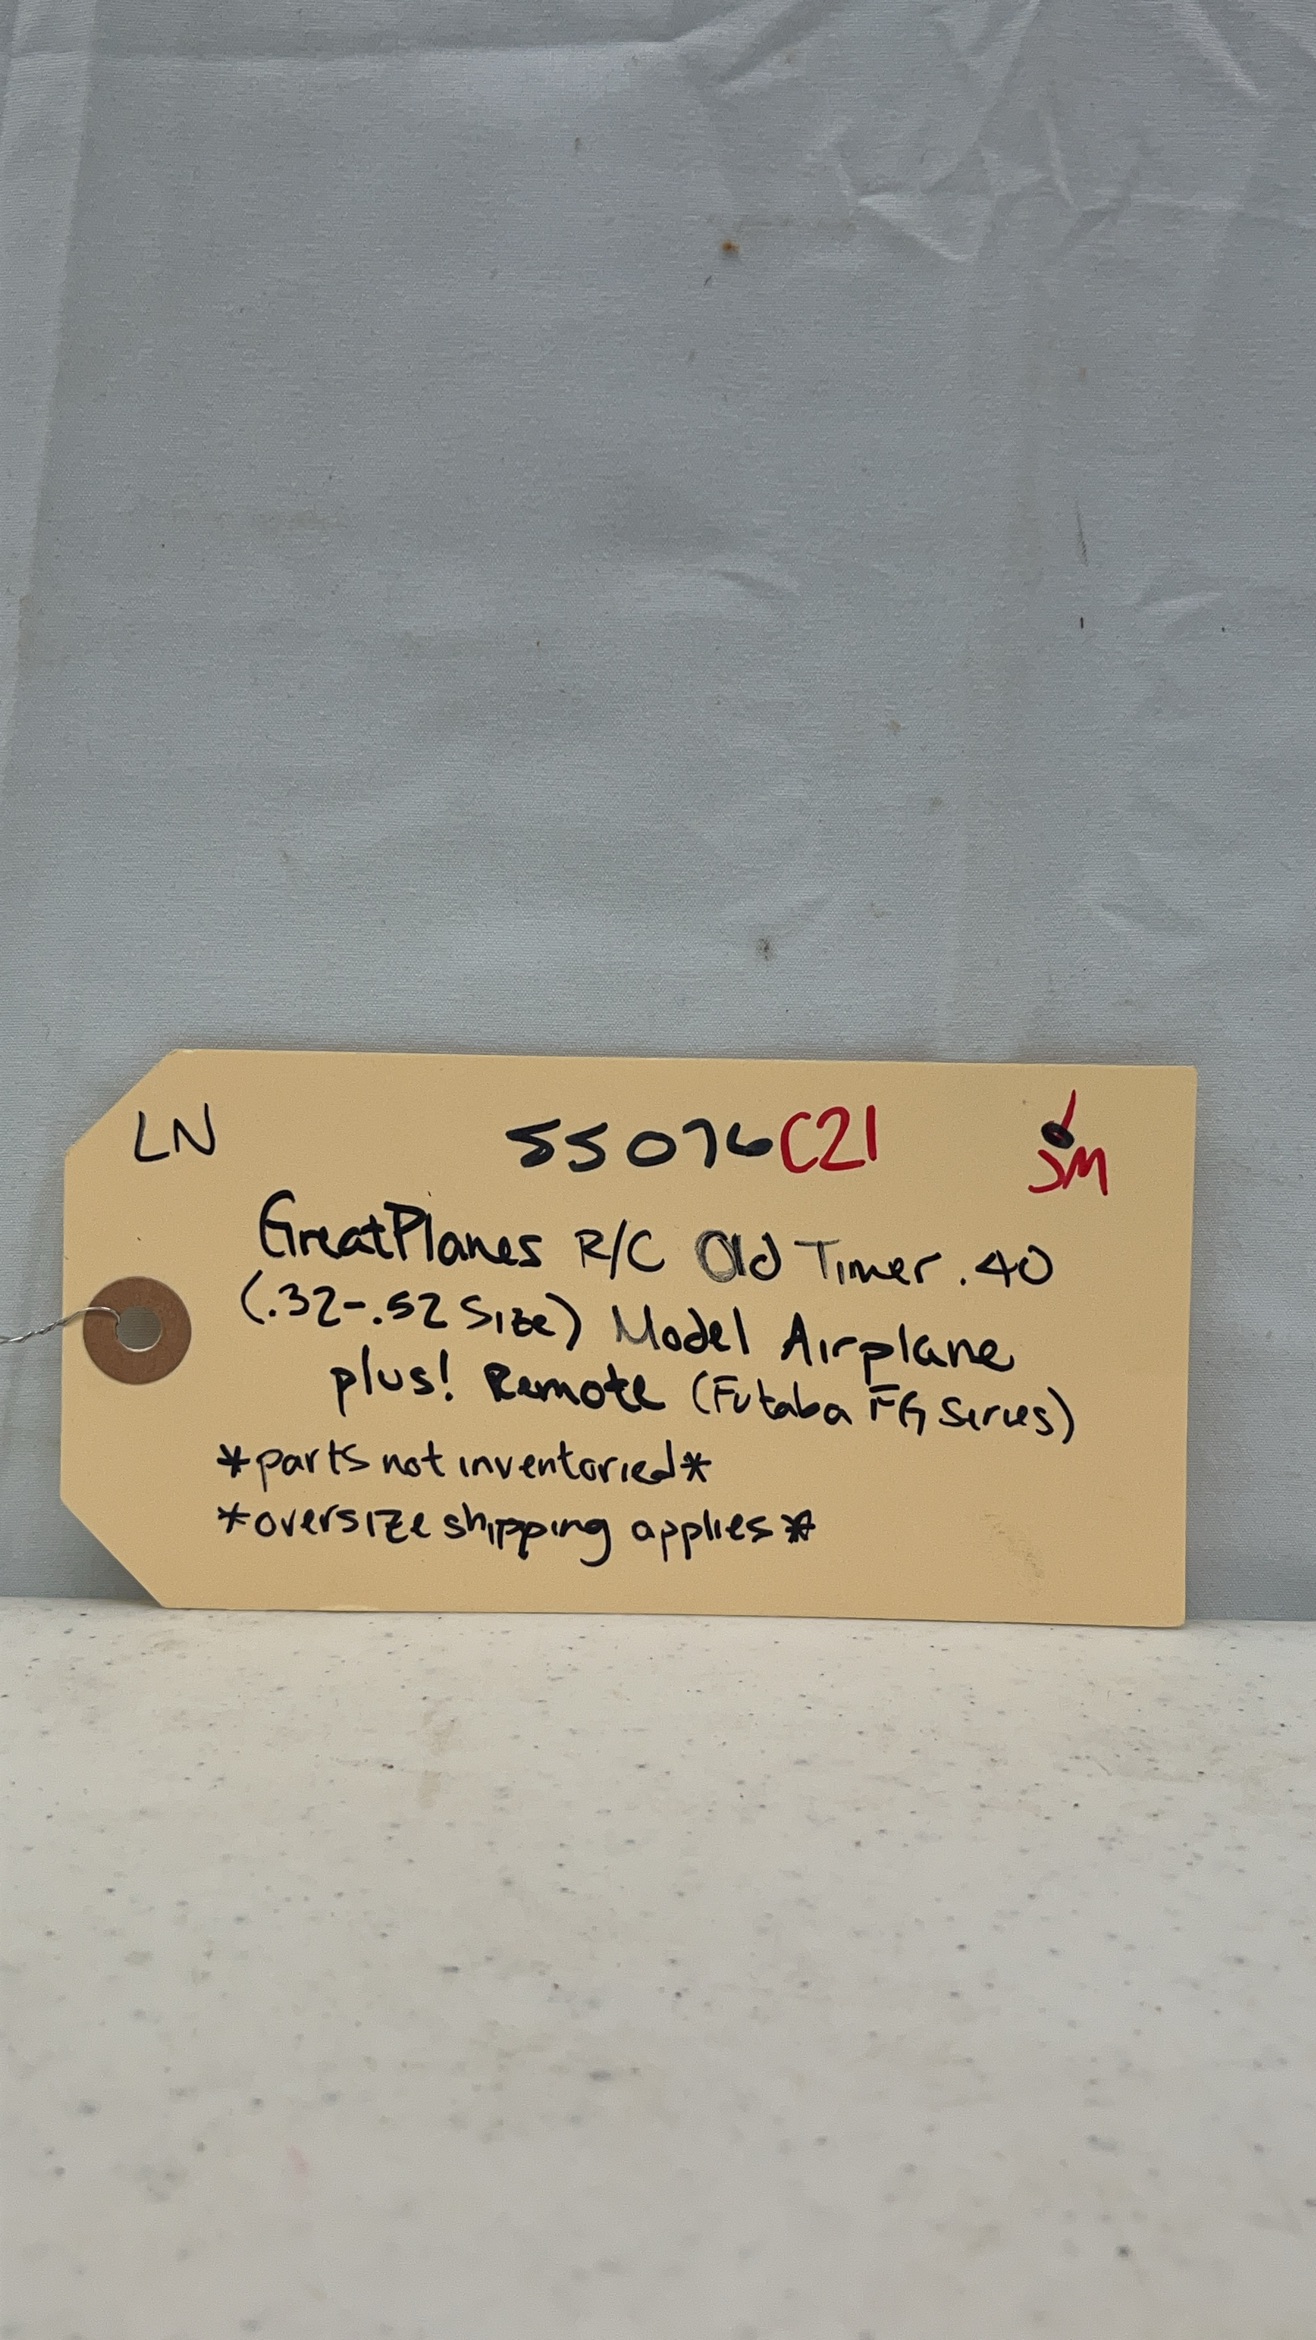 LN 55076 C21 JM
Great Planes R/C Old Timer .40
(.32-.52 Size) Model Airplane
plus! Remote (Futaba FG Series)
*parts not inventoried*
*oversize shipping applies*